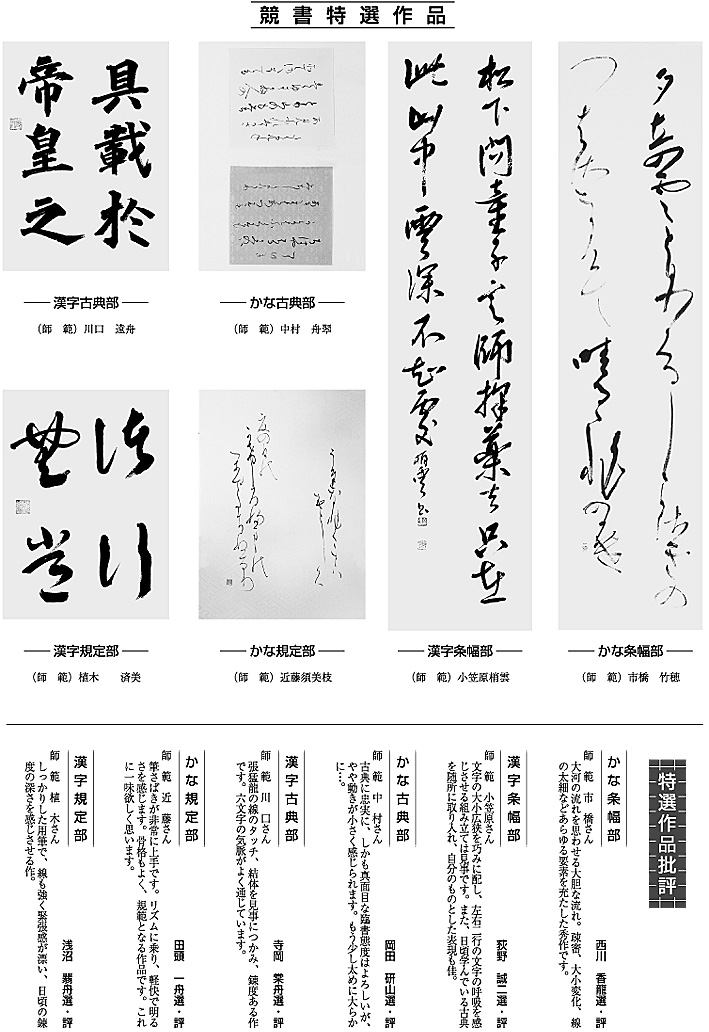 競書特選作品
松下問童子言師採薬去只在
此山中雲深不知處
具載於
帝皇之
かな条幅部
（師　範）市橋　竹穂
漢字条幅部
（師　範）小笠原梢雲
かな古典部
（師　範）中村　舟翠
漢字古典部
（師　範）川口　遠舟
かな規定部
（師　範）近藤須美枝
漢字規定部
（師　範）植木　済美
特選作品批評
かな条幅部
西川　香龍選・評
師　範　市　橋さん
大河の流れを思わせる大胆な流れ。疎密、大小変化、線
の太細などあらゆる要素を充たした秀作です。
漢字条幅部
荻野　誠二選・評
師　範　小笠原さん
文字の大小広狭を巧みに配し、左右二行の文字の呼吸を感
じさせる組み立ては見事です。また、日頃学んでいる古典
を随所に取り入れ、自分のものとした表現も佳。
かな古典部
岡田　研山選・評
師　範　中　村さん
古典に忠実に、しかも真面目な臨書態度はよろしいが、
やや動きが小さく感じられます。もう少し太めに大らか
に…。
漢字古典部
寺岡　棠舟選・評
師　範　川　口さん
張猛龍の線のタッチ、結体を見事につかみ、錬度ある作
です。六文字の気脈がよく通じています。
かな規定部
田頭　一舟選・評
師　範　近　藤さん
筆さばきが非常に上手です。リズムに乗り、軽快で明る
さを感じます。骨格もよく、規範となる作品です。これ
に一味欲しく思います。
漢字規定部
浅沼　翡舟選・評
師　範　植　木さん
しっかりした用筆で、線も強く緊張感が漂い、日頃の錬
度の深さを感じさせる作。